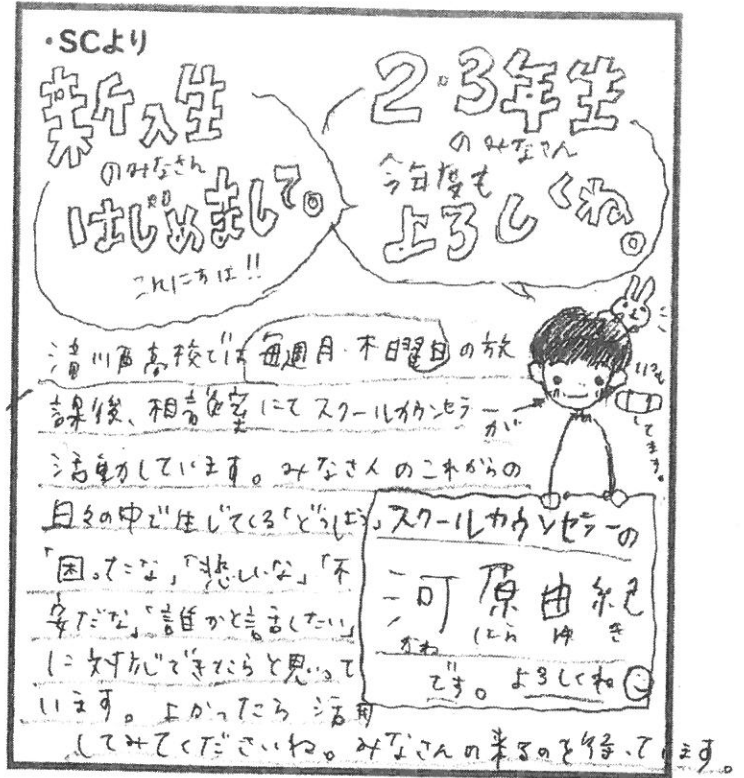 ・SCより
新入生
のみなさん
はじめまして。
こんにちは!!
2・3年生
のみなさん
今年度も
よろしくね。
高校では毎週月・木曜日の放
課後、相談室にてスクールカウンセラーが
活動しています。みなさんのこれからの
日々の中で生じてくる「どうしよう」
「困ったな」「悲しいな」「不
安だな」「誰かと話したい」
に対応できたらと思って
います。よかったら活用
してみてくださいね。みなさんの来るのを待っています。
してます。
スクールカウンセラーの
河原由紀
かわ はら ゆ き
です。よろしくね